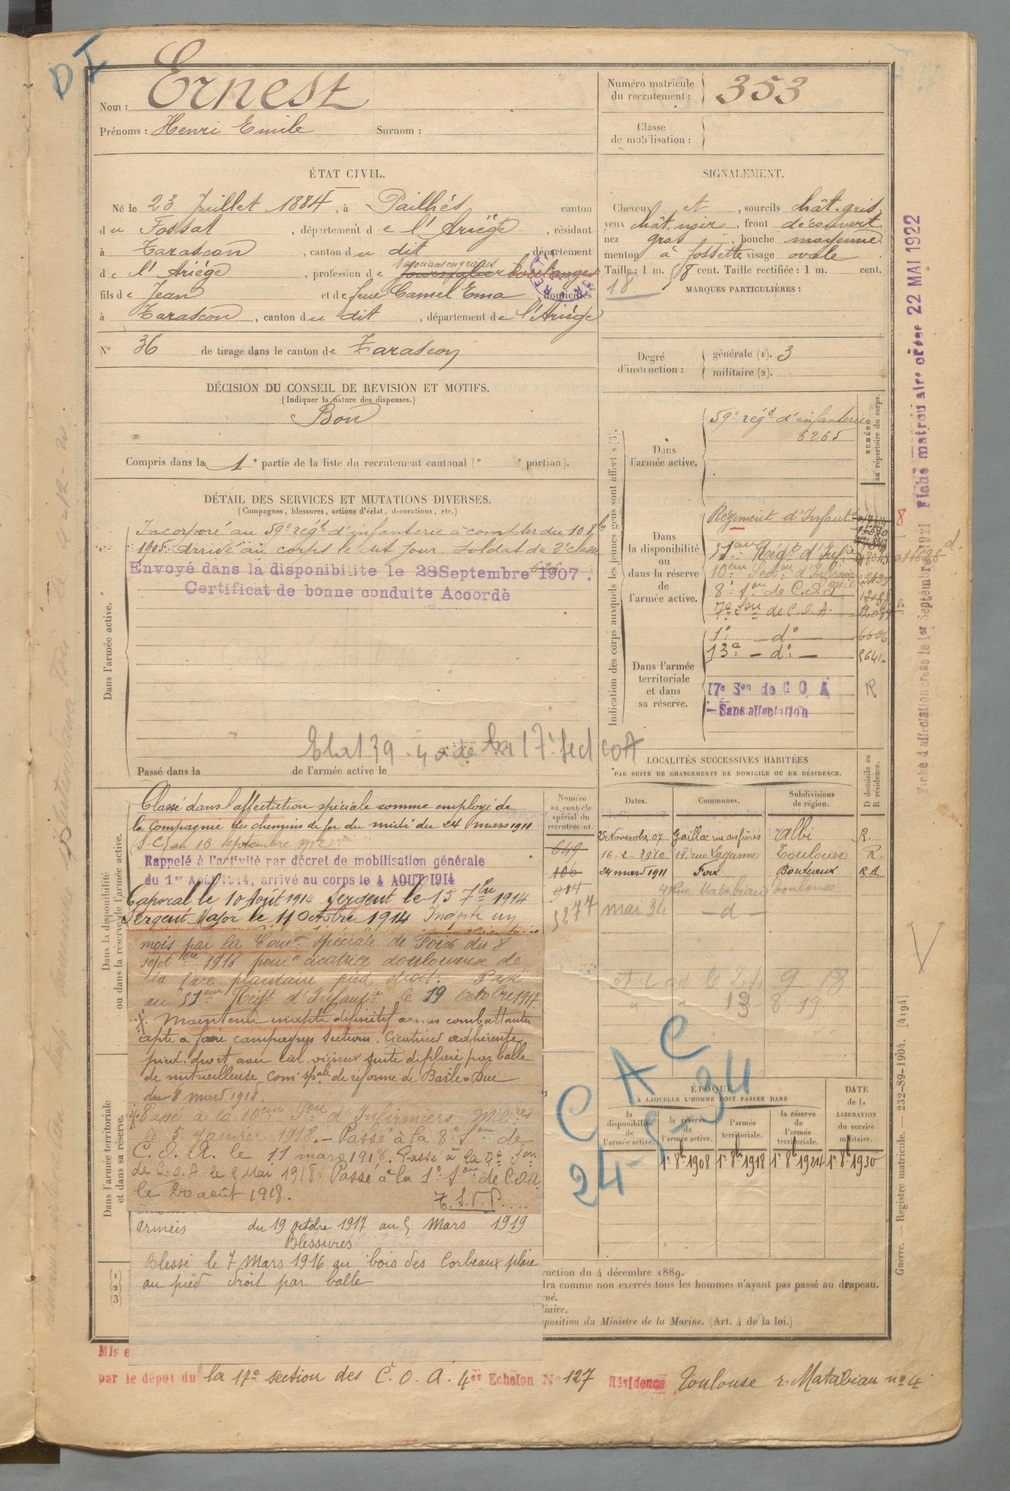 DI
Nom : Ernest
Prénoms : Henri Emile Surnom :
Numéro matricule du recrutement : 353
Classe de mobilisation :
ÉTAT CIVIL.
Né le 23 Juillet 1884, à Pailhés canton
du Fossat, département de l'Ariège, résidant
à Tarascon, canton du dit département
de l'Ariège, profession de boulanger
fils de Jean et de feue Camel Ema domiciliés
à Tarascon, canton du dit, département de l'Ariège
N° 36 de tirage dans le canton de Tarascon
SIGNALEMENT.
Cheveux, sourcils chât. gris
yeux chât. noir, front découvert
nez gros, bouche moyenne
menton à fossette visage ovale
Taille : 1 m. 8 cent. Taille rectifiée : 1 m. cent.
18
MARQUES PARTICULIÈRES :
Degré d'instruction : générale (1). 3
militaire (2).
DÉCISION DU CONSEIL DE REVISION ET MOTIFS.
(Indiquer la nature des dispenses.)
Bon
Compris dans la 1e partie de la liste du recrutement cantonal (e portion).
DÉTAIL DES SERVICES ET MUTATIONS DIVERSES.
(Campagnes, blessures, actions d'éclat, décorations, etc.)
Dans l'armée active.
Incorporé au 59e régt d'infanterie à compter du 10 8bre
1905. arrivé au corps le dit jour. Soldat de 2e classe
Envoyé dans la disponibilité le 28 Septembre 1907.
Certificat de bonne conduite Accordé
Passé dans la de l'armée active le
Indication des corps auxquels les jeunes gens sont affectés
NUMÉRO au répertoire du corps.
Dans l'armée active.
59e régt d'infanterie
6265
Dans la disponibilité ou dans la réserve de l'armée active.
Régiment d'Infante
8e Son de C.O.A
7e Son de C.O.A.
1e — do —
13e — do —
Dans l'armée territoriale et dans sa réserve.
17e Son de C O A
Sans affectation
R
LOCALITÉS SUCCESSIVES HABITÉES
PAR SUITE DE CHANGEMENTS DE DOMICILE OU DE RÉSIDENCE.
Dates. Communes. Subdivisions de région. D domicile ou R résidence.
25 Novembre 07 Gaillac rue des frères Albi R.
16-2-1910 11, rue Lagarme Toulouse R.
24 mars 1911 Foix Bordeaux R.d.
4 Rue Matabiau Toulouse
mai 34 — d —
Numéro au contrôle spécial du recrutement.
649
106
Dans la disponibilité ou dans la réserve de l'armée active.
Classé dans l'affectation spéciale comme employé de
la Compagnie des chemins de fer du midi du 24 mars 1911
Rappelé à l'activité par décret de mobilisation générale
du 1er Août 1914, arrivé au corps le 4 AOUT 1914
Caporal le 10 Août 1914 Sergent le 15 7bre 1914
Sergent Major le 11 Octobre 1914 Inapte un
mois par la Comon spéciale de Foix du 8
septbre 1916 pour cicatrice douloureuse de
la face plantaire pied droit. Passé
au Régt d'Infantie le 19 Octobre 1917
Maintenu inapte définitif armes combattantes
apte à faire campagnes sections. Cicatrice adhérente
pied droit avec cal vicieux suite de plaie par balle
de mitrailleuse, Com. spale de réforme de Bar le Duc
du 8 mars 1918.
Passé à la 10eme Son d'Infirmiers Milres
le 5 Janvier 1918. — Passé à la 8e Son de
C.O.A. le 11 mars 1918. Passé à la 7e Son
de C.O.A. le 5 Mai 1918. Passé à la 1e Son de C.O.A
le 20 août 1918. T.S.V.P....
Dans l'armée territoriale et dans sa réserve.
armées du 19 octobre 1917 au 5 Mars 1919
Blessures
Blessé le 7 Mars 1916 au bois des Corbeaux plaie
au pied droit par balle
9 18
13 - 8 19
C A C
24-5-34
ÉPOQUE
À LAQUELLE L'HOMME DOIT PASSER DANS
la disponibilité de l'armée active. la réserve de l'armée active. l'armée territoriale. la réserve de l'armée territoriale. DATE de la LIBÉRATION du service militaire.
1er 8b 1908 1er 8b 1918 1er 8b 1924 1er 8b 1930
uction du 4 décembre 1889.
dra comme non exercés tous les hommes n'ayant pas passé au drapeau.
position du Ministre de la Marine. (Art. 4 de la loi.)
par le dépôt du la 17e section des C.O.A. 4er Echelon No 127 Résidence Toulouse r. Matabiau no 4
Fiche matricule créée 22 MAI 1922
Fiche d'affectation créée le 1er Septembre 1921
Guerre. — Registre matricule. — 232-89-1904. [4194]